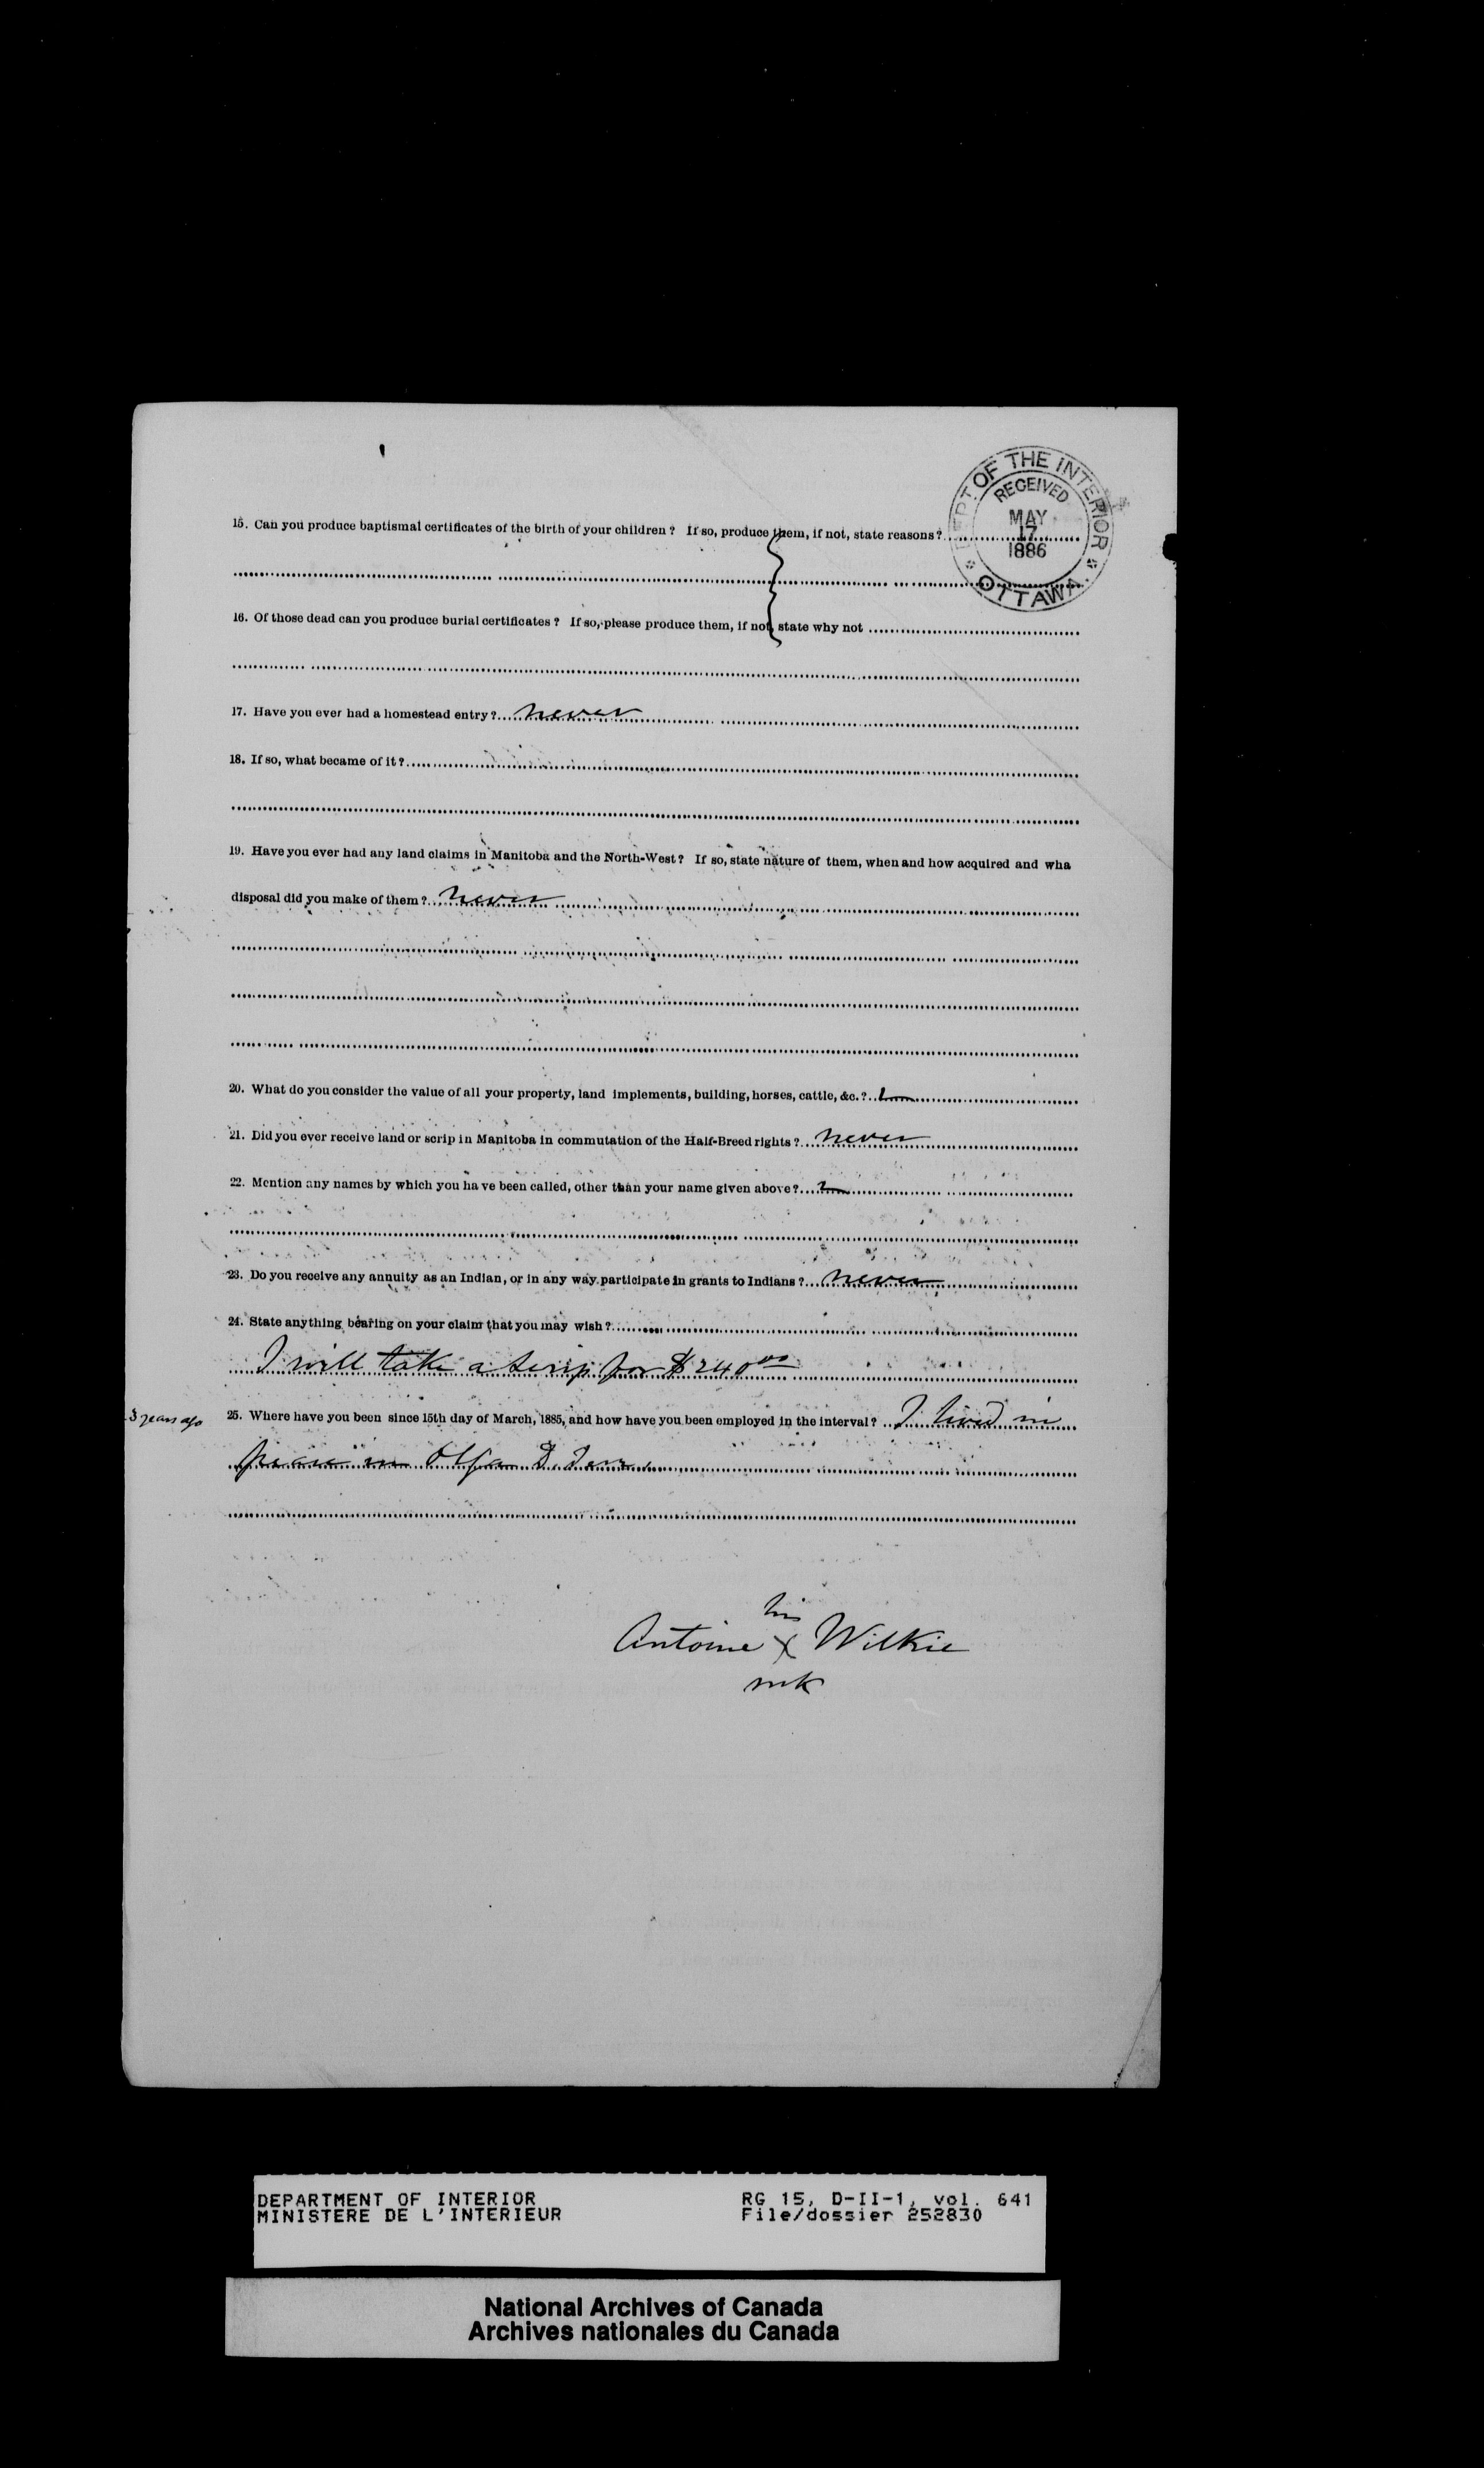 DEPT. OF THE INTERIOR
RECEIVED
MAY
17
1886
OTTAWA.
15. Can you produce baptismal certificates of the birth of your children ? If so, produce them, if not, state reasons ?
16. Of those dead can you produce burial certificates ? If so, please produce them, if not, state why not
17. Have you ever had a homestead entry ? never
18. If so, what became of it ?
19. Have you ever had any land claims in Manitoba and the North-West ? If so, state nature of them, when and how acquired and wha
disposal did you make of them ? never
20. What do you consider the value of all your property, land implements, building, horses, cattle, &c. ?
21. Did you ever receive land or scrip in Manitoba in commutation of the Half-Breed rights ? never
22. Mention any names by which you have been called, other than your name given above ?
23. Do you receive any annuity as an Indian, or in any way participate in grants to Indians ? never
24. State anything bearing on your claim that you may wish ?
I will take a scrip for $240 00
3 years ago 25. Where have you been since 15th day of March, 1885, and how have you been employed in the interval ? I lived in
peace in Olga D. Terr.
his
Antoine X Wilkie
mk
DEPARTMENT OF INTERIOR RG 15, D-II-1, vol. 641
MINISTERE DE L'INTERIEUR File/dossier 252830
National Archives of Canada
Archives nationales du Canada